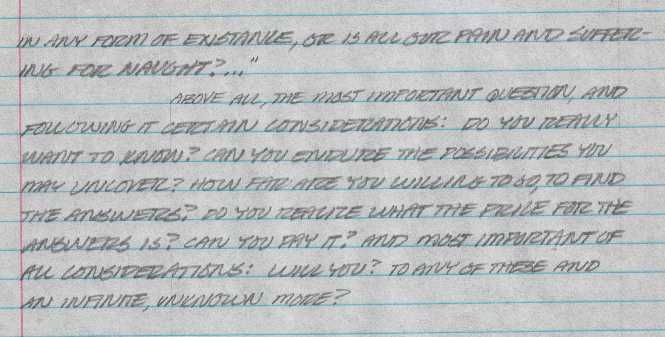 IN ANY FORM OF EXISTANCE, OR IS ALL OUR PAIN AND SUFFER-
ING FOR NAUGHT?..."
ABOVE ALL, THE MOST IMPORTANT QUESTION, AND
FOLLOWING IT CERTAIN CONSIDERATIONS: DO YOU REALLY
WANT TO KNOW? CAN YOU ENDURE THE POSSIBILITIES YOU
MAY UNCOVER? HOW FAR ARE YOU WILLING TO GO, TO FIND
THE ANSWERS? DO YOU REALIZE WHAT THE PRICE FOR THE
ANSWERS IS? CAN YOU PAY IT? AND MOST IMPORTANT OF
ALL CONSIDERATIONS: WILL YOU? TO ANY OF THESE AND
AN INFINITE, UNKNOWN MORE?